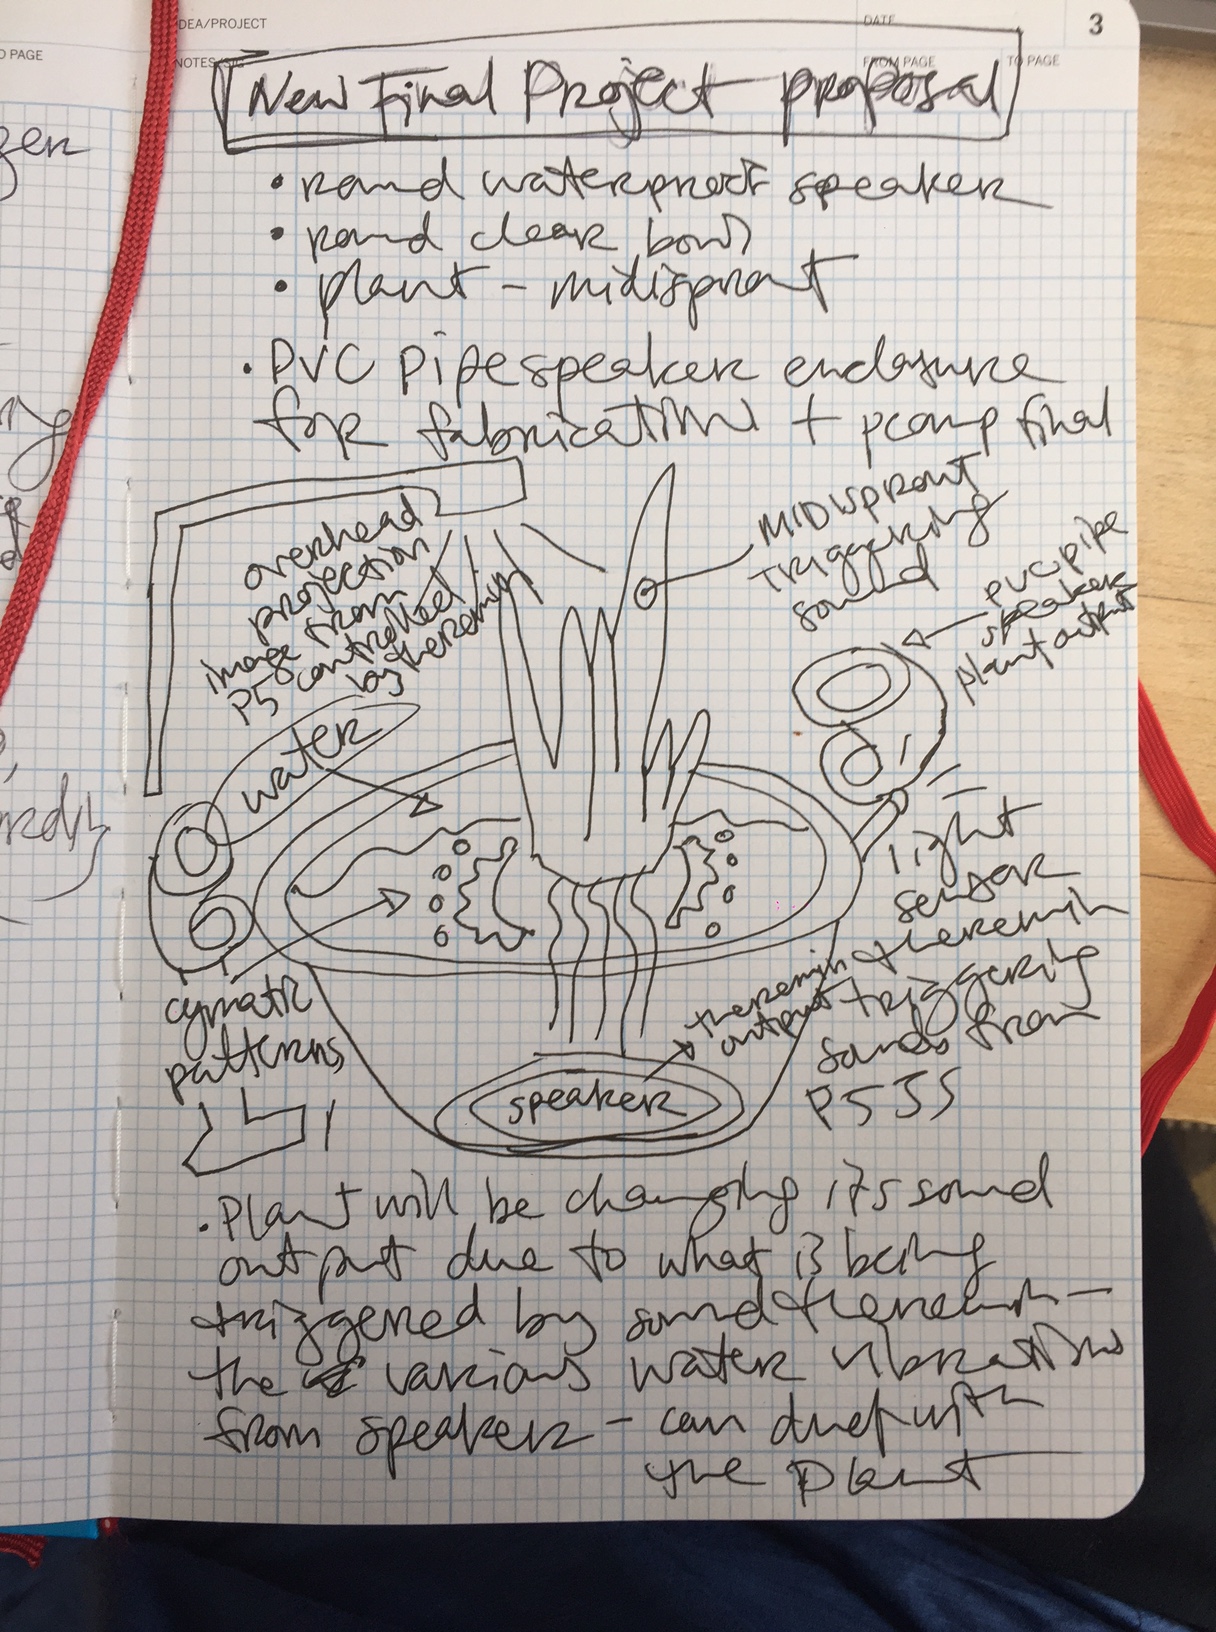 IDEA/PROJECT
DATE
3
O PAGE
NOTES/SIG
FROM PAGE
TO PAGE
New Final Project proposal
• round waterproof speaker
• round clear bowl
• plant - midisprout
• PVC pipe speaker enclosure
for fabrication + pcomp final
overhead
projection
image from
P5 controlled
by theremin
MIDI sprout
triggering
sound
PVC pipe
speaker
plant output
water
light
sensor
theremin
triggering
sounds from
P5JS
theremin
output
cymatic
patterns
speaker
• Plant will be changing its sound
output due to what is being
triggered by sound theremin -
the various water vibrations
from speaker - can duet with
the plant